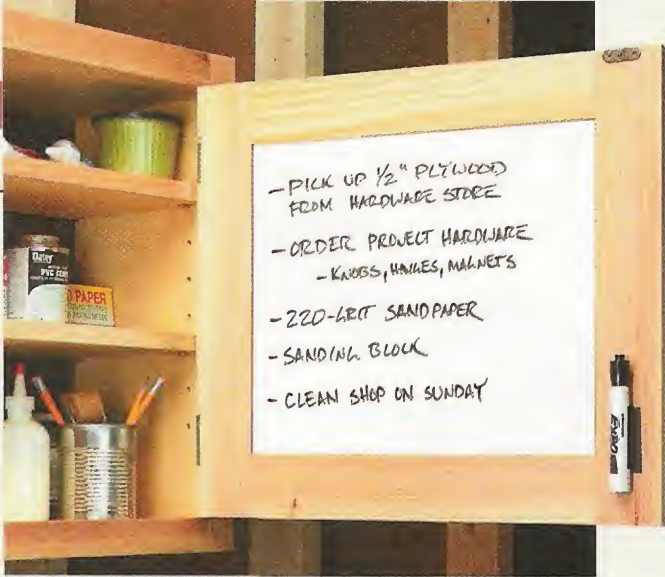 - PICK UP 1/2" PLYWOOD
FROM HARDWARE STORE
- ORDER PROJECT HARDWARE
- KNOBS, HINGES, MAGNETS
- 220-GRIT SANDPAPER
- SANDING BLOCK
- CLEAN SHOP ON SUNDAY
Oatey
PVC CEMENT
PAPER